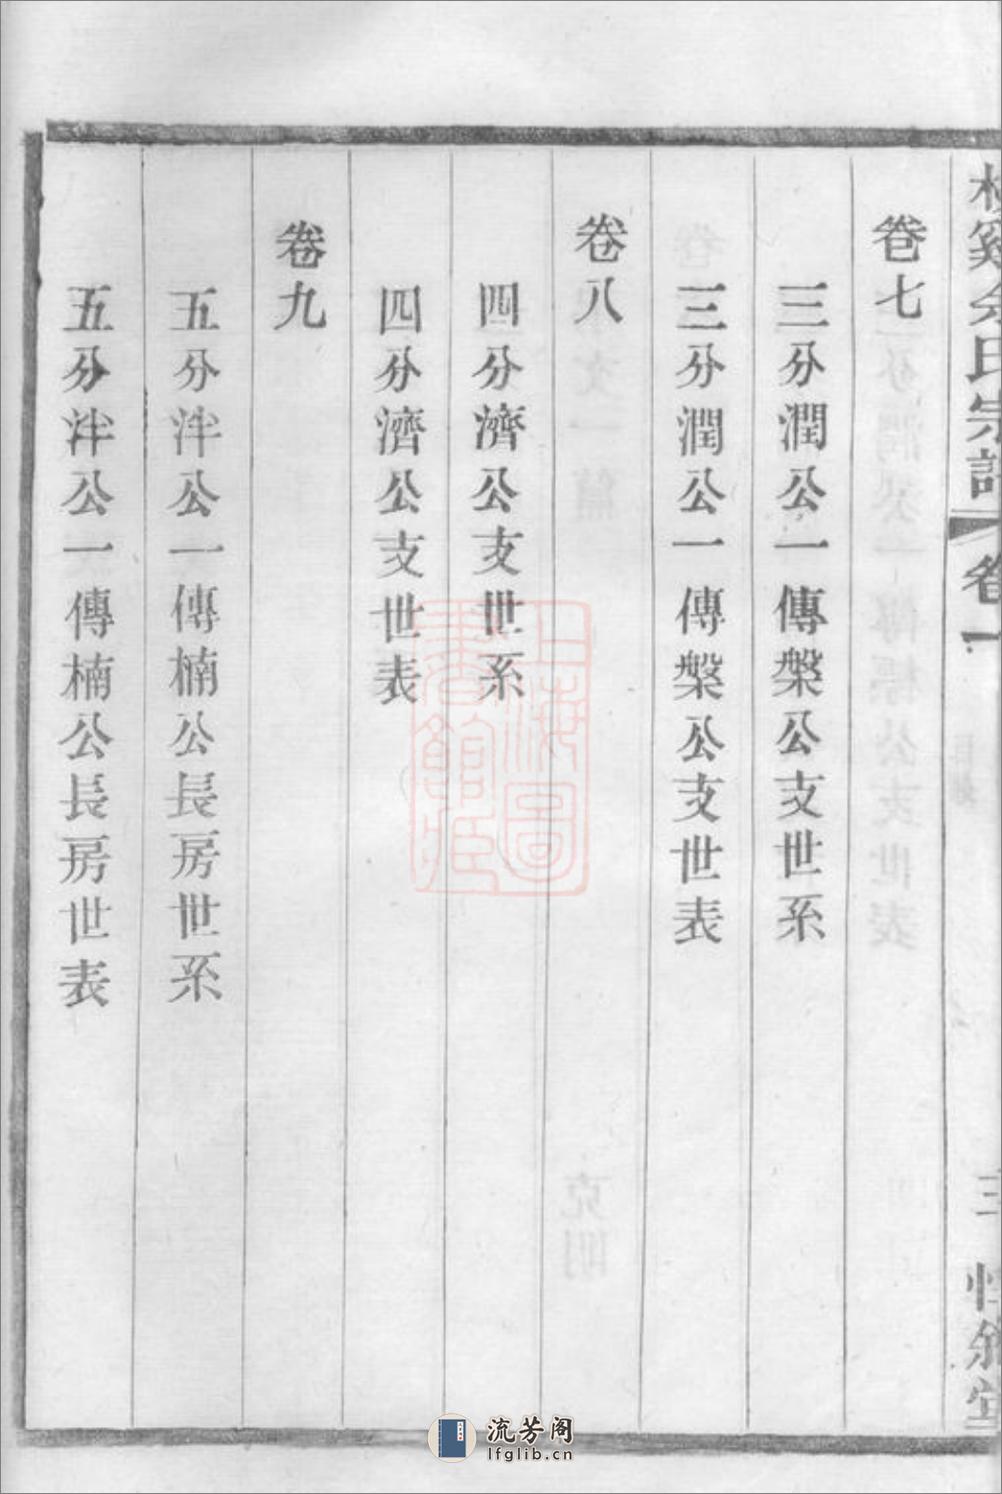 氏宗譜 卷一 三
卷七
三分潤公一傳槃公支世系
三分潤公一傳槃公支世表
卷八
四分濟公支世系
四分濟公支世表
卷九
五分泮公一傳楠公長房世系
五分泮公一傳楠公長房世表
上海圖
書館藏
流芳阁
lfglib.cn